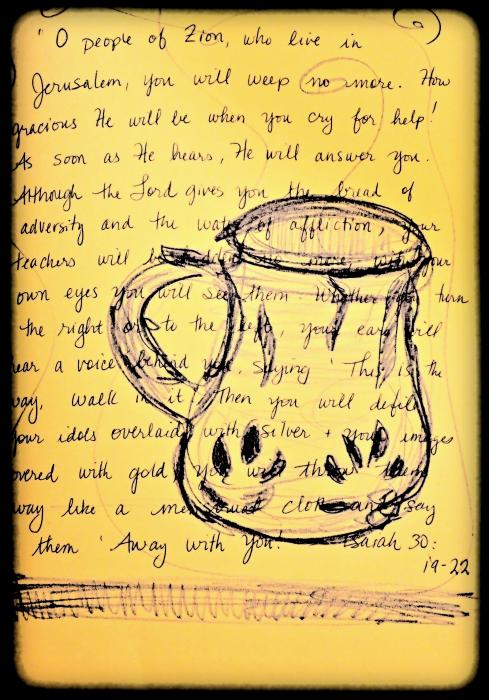 " O people of Zion, who live in
Jerusalem, you will weep no more. How
gracious He will be when you cry for help!
As soon as He hears, He will answer you.
Although the Lord gives you the bread of
adversity and the water of affliction, your
teachers will be hidden no more, with your
own eyes you will see them. Whether you turn
the right or to the left, your ears will
hear a voice behind you, saying ' This is the
way, walk in it.' Then you will defile
your idols overlaid with silver + your images
covered with gold. You will throw them
away like a menstrual cloth and say
them ' Away with you!' Isaiah 30:
19-22